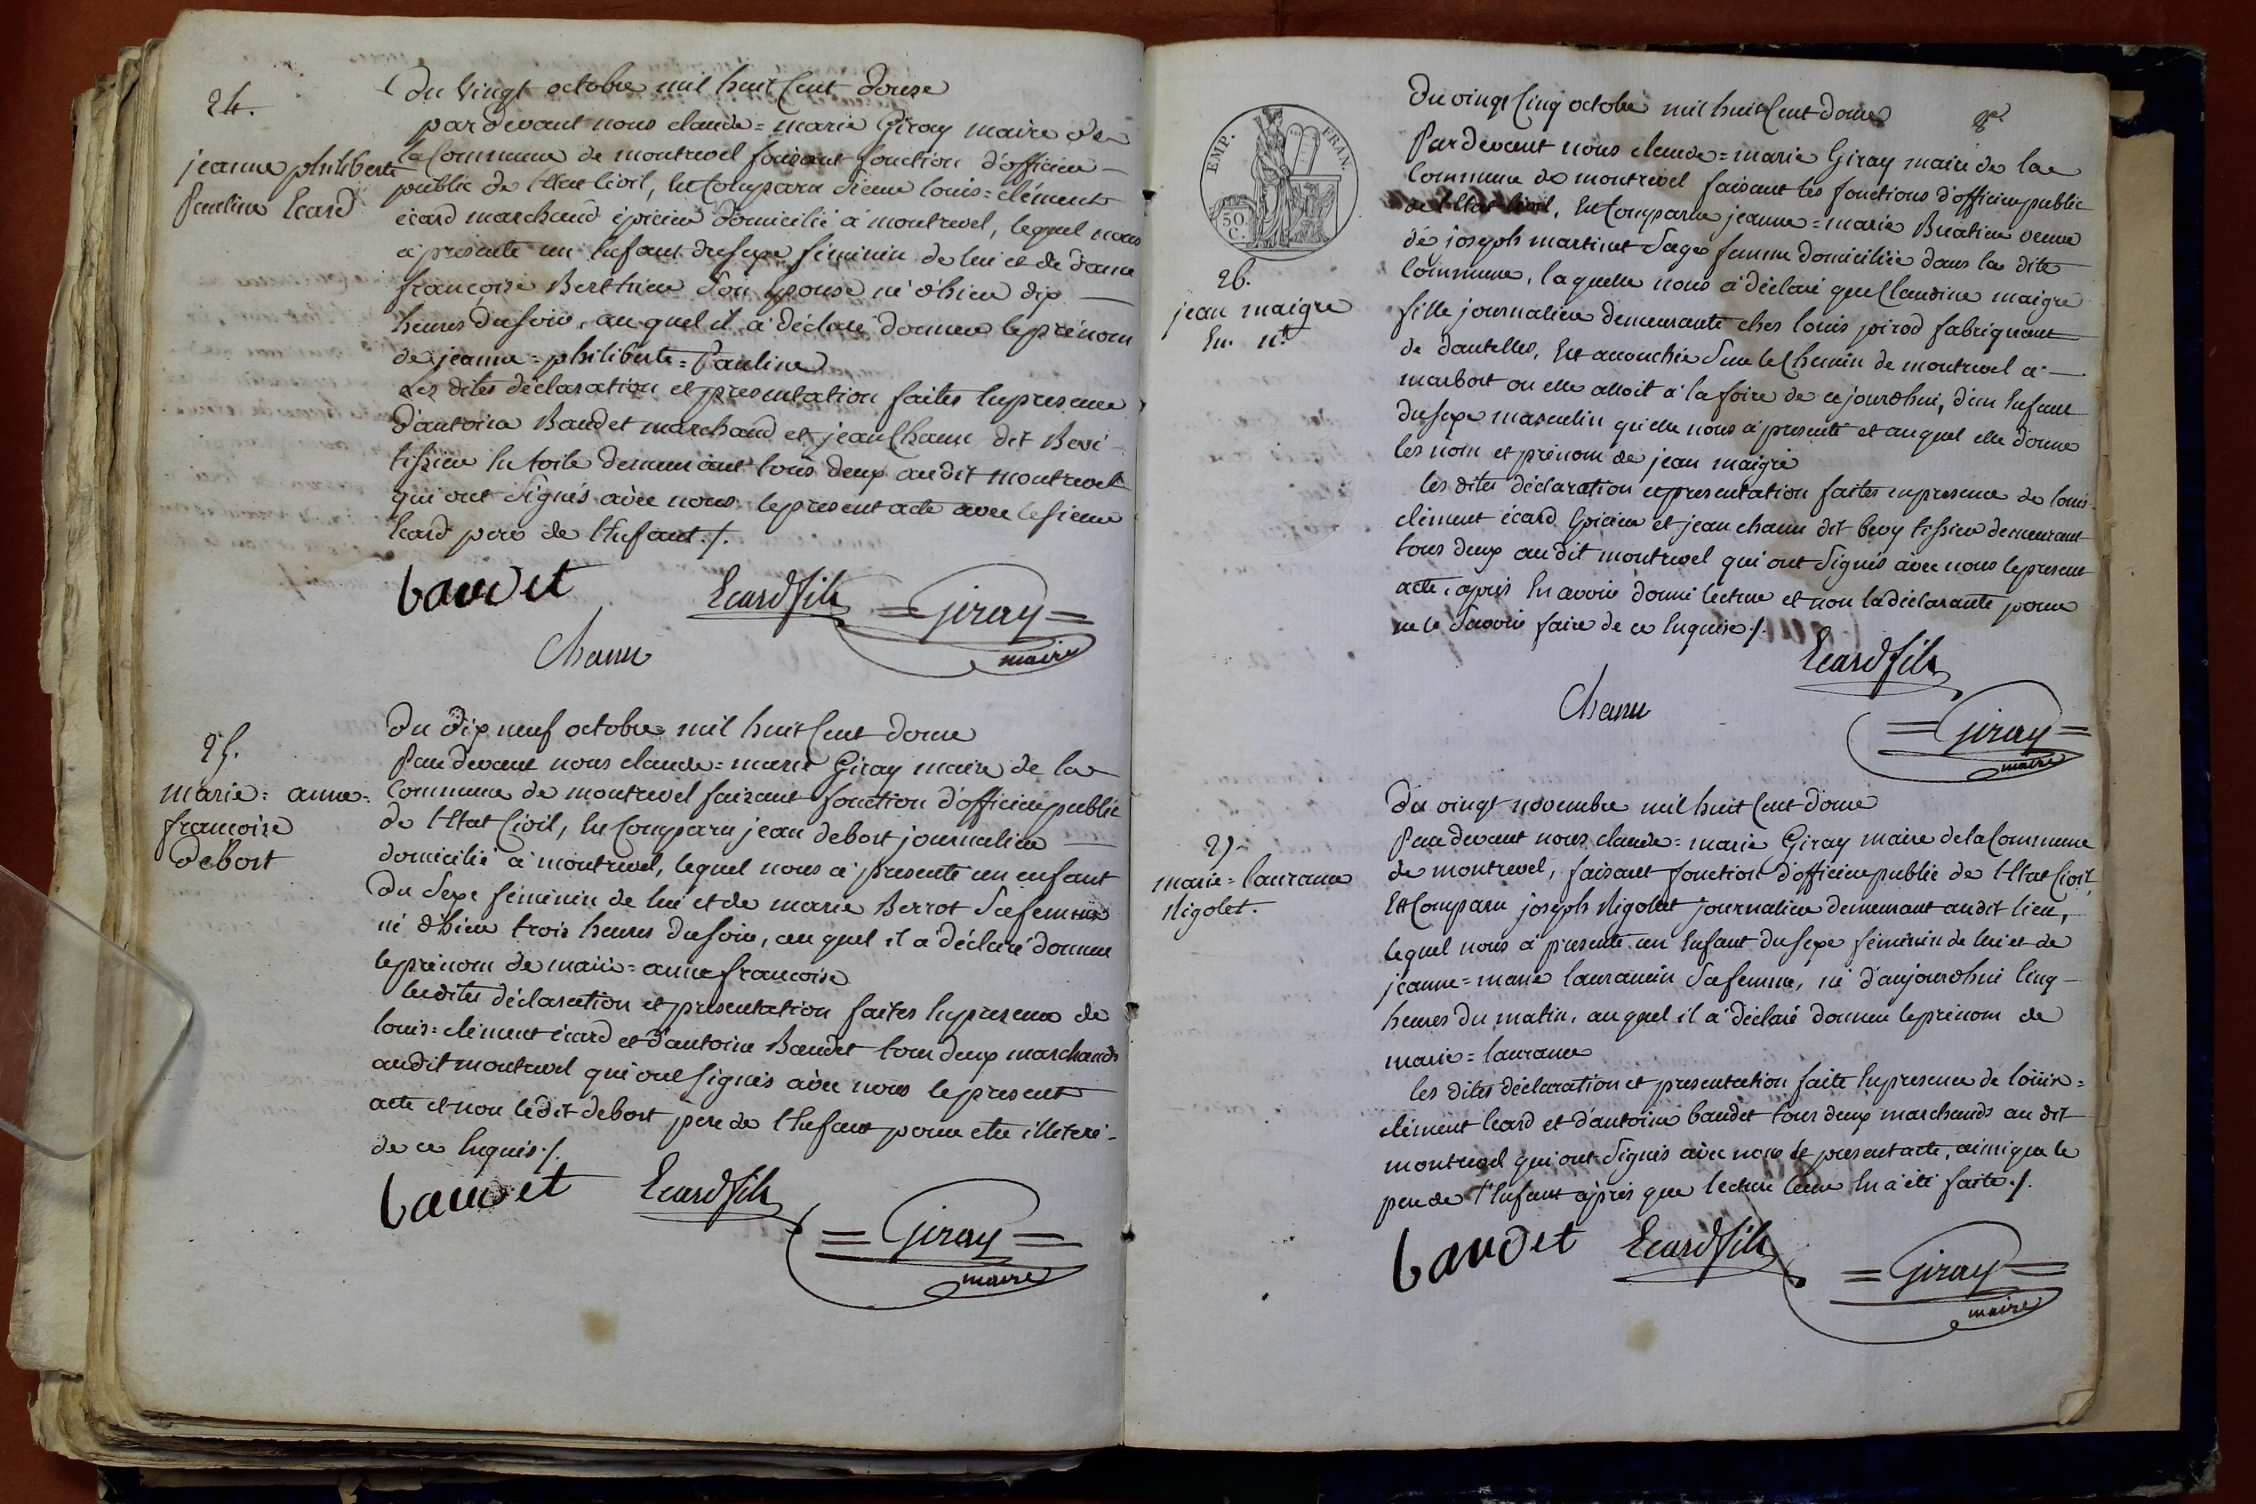 24.
jeanne philiberte
Pauline Ecard
Du vingt octobre mil huit Cent douze
par devant nous claude=marie Giray maire de
la Commune de montrevel faisant fonction d'officier
public de l'Etat Civil, Est Comparu Sieur louis=clément
écard marchand épicier domicilié à montrevel, lequel nous
a présenté un Enfant du sexe féminin de lui et de dame
françoise Berthier son Epouse né d'hier dix
heures du soir, au quel il a déclaré donner le prénom
de jeanne=philiberte=Pauline
Les dites déclaration et presentation faites En presence
d'antoine Baudet marchand et jean Chanu dit Bevi
tissier En toile demeurant tous deux au dit montrevel
qui ont signés avec nous le present acte avec le sieur
Ecard pere de l'Enfant ./.
baudet
Ecard fils
=Giray=
maire
Chanu
25.
marie=anne=
francoise
debost
Du dix neuf octobre mil huit Cent douze
Par devant nous claude=marie Giray maire de la
Commune de montrevel faisant fonction d'officier public
de l'Etat Civil, Est Comparu jean debost journalier
domicilié à montrevel, lequel nous a presenté un enfant
du sexe féminin de lui et de marie Berrot sa femme
né d'hier trois heures du soir, au quel il a déclaré donner
le prénom de marie=anne francoise
les dites déclaration et presentation faites En presence de
louis=clément écard et d'antoine Baudet tous deux marchands
au dit montrevel qui ont signés avec nous le present
acte et non le dit debost pere de l'Enfant pour etre illeteré
de ce Enquis ./.
baudet
Ecard fils
=Giray=
maire
EMP. FRAN.
50 C.
26.
jean maigre
En. n.el
Du vingt Cinq octobre mil huit Cent douze
Par devant nous claude=marie Giray maire de la
Commune de montrevel faisant les fonctions d'officier public
de l'Etat Civil, Est Comparue jeanne=marie Buatier veuve
de joseph martinet sage femme domiciliée dans la dite
Commune, laquelle nous a déclaré que Claudine maigre
fille journaliere demeurante chez louis pirod fabriquant
de dantelles, Est accouchée sur le Chemin de montrevel a
marbost ou elle alloit a la foire de ce jourd'hui, d'un Enfant
du sexe masculin qu'elle nous a presenté et auquel elle donne
les nom et prénom de jean maigre
les dites déclaration et presentation faites en presence de louis
clément écard Epicier et jean chanu dit bevy tissier demeurant
tous deux au dit montrevel qui ont signés avec nous le present
acte, après En avoir donné lecture et non la déclarante pour
ne le savoir faire de ce Enquise ./.
Ecard fils
Chanu
=Giray=
maire
27
marie=laurance
Nigolet.
Du vingt novembre mil huit Cent douze
Par devant nous claude=marie Giray maire de la Commune
de montrevel, faisant fonction d'officier public de l'Etat Civil,
Est Comparu joseph Nigolet journalier demeurant au dit lieu,
lequel nous a presenté un Enfant du sexe féminin de lui et de
jeanne=marie laurancin sa femme, né d'aujourd'hui Cinq
heures du matin, au quel il a déclaré donner le prénom de
marie=laurance
les dites déclaration et presentation faite En presence de louis=
clément Ecard et d'antoine baudet tous deux marchands au dit
montrevel qui ont signés avec nous le present acte, ainsi que le
pere de l'Enfant après que lecture leur En a été faite ./.
baudet
Ecard fils
=Giray=
maire